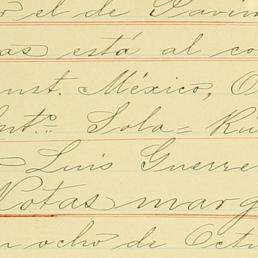 el de Pavim
as está al co
unst. México, O
Anto. Sola= Rú
Luis Guerre
Notas marg
n ocho de Octu